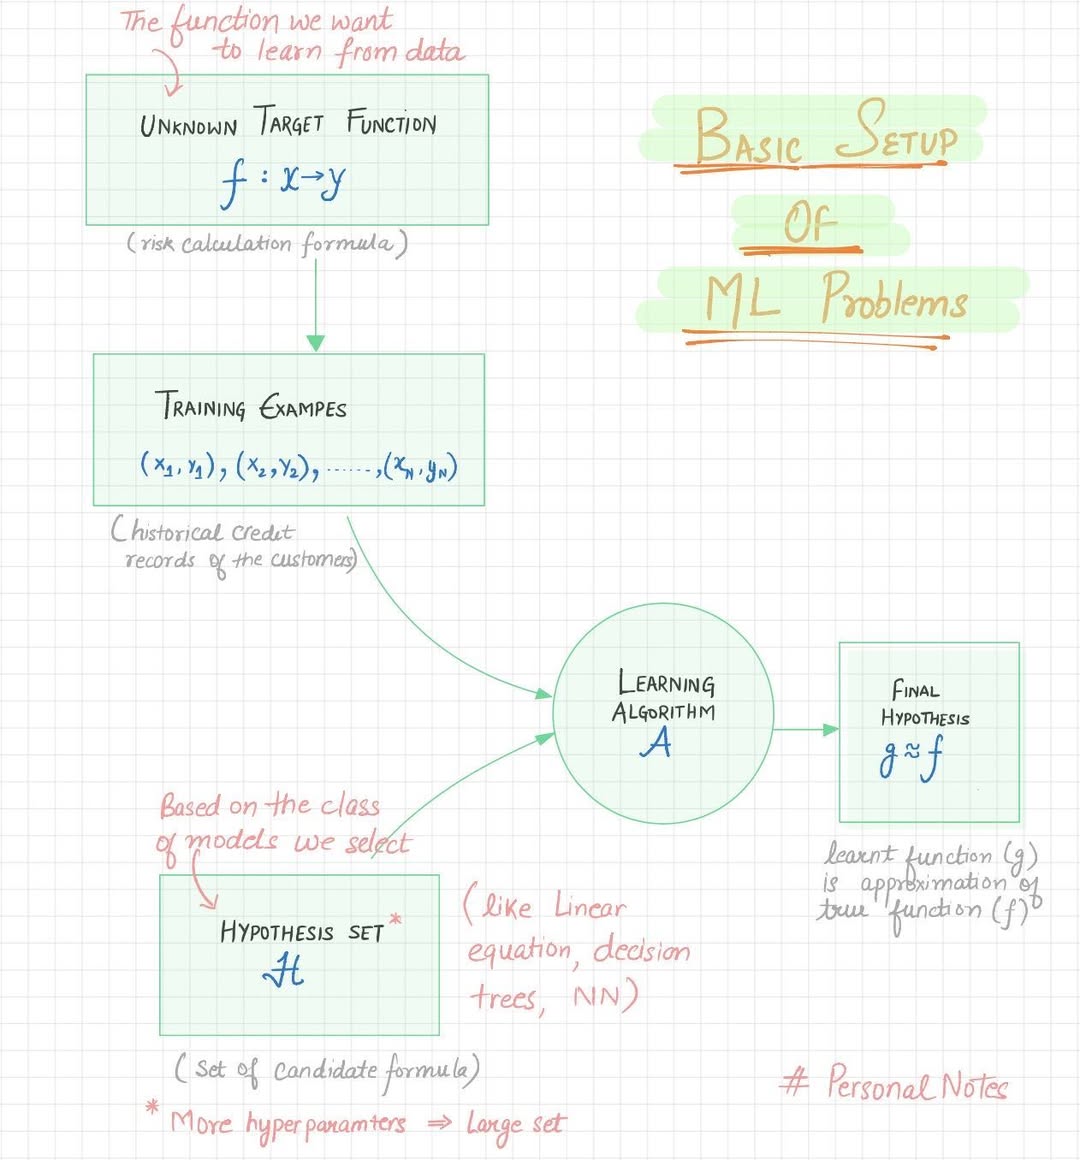 The function we want
to learn from data
UNKNOWN TARGET FUNCTION
f : X→y
(risk calculation formula)
BASIC SETUP
OF
ML Problems
TRAINING EXAMPES
(x₁, y₁), (x₂, y₂), ......, (x_N, y_N)
(historical credit
records of the customers)
LEARNING
ALGORITHM
A
FINAL
HYPOTHESIS
g ≈ f
learnt function (g)
is approximation of
true function (f)
Based on the class
of models we select
HYPOTHESIS SET *
H
(like Linear
equation, decision
trees, NN)
(set of candidate formula)
* More hyperparamters ⇒ Large set
# Personal Notes